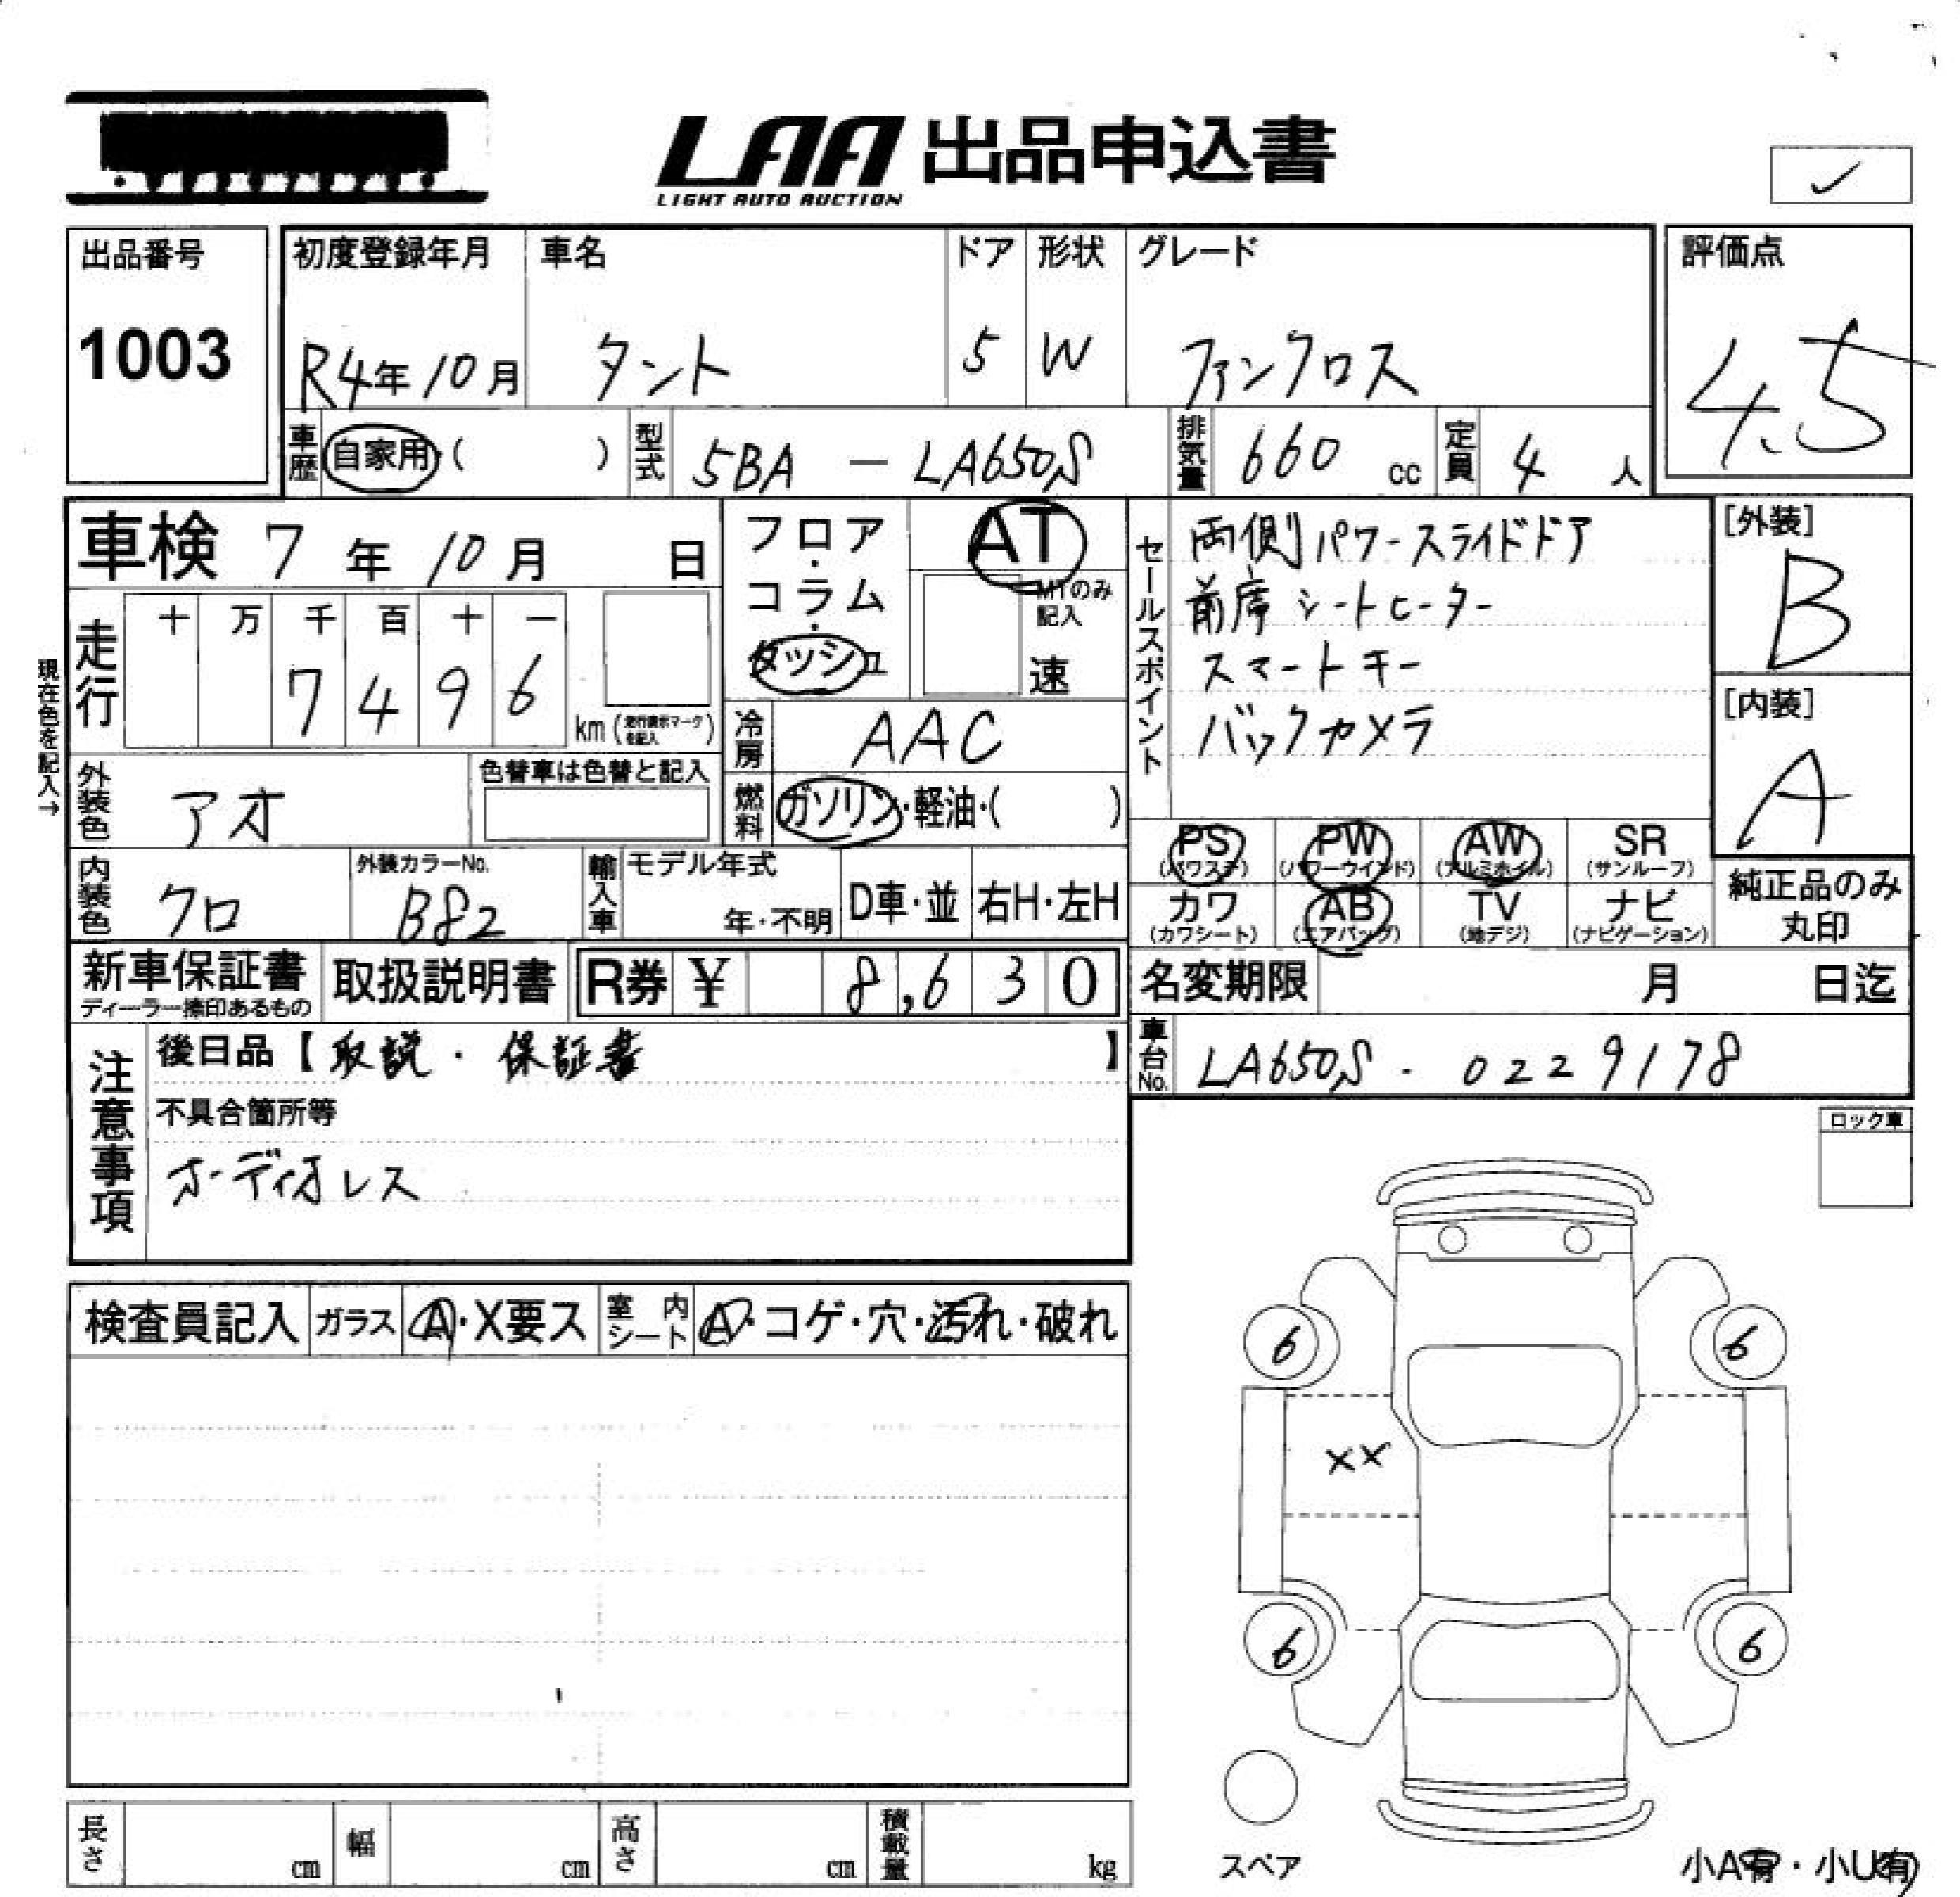 LAA 出品申込書
LIGHT AUTO AUCTION
✓
出品番号
1003
初度登録年月
R4年10月
車名
タント
ドア
5
形状
W
グレード
ファンクロス
評価点
4.5
車歴
自家用・( )
型式
5BA - LA650S
排気量
660 cc
定員
4 人
車検 7年 10月 日
現在色を記入→
走行
十 万 千 百 十 一
7 4 9 6
km (走行表示マークを記入)
フロア・コラム・ダッシュ
AT
MTのみ記入
速
冷房
AAC
燃料
ガソリン・軽油・( )
外装色
アオ
色替車は色替と記入
内装色
クロ
外装カラーNo.
B82
輸入車
モデル年式
年・不明
D車・並
右H・左H
セールスポイント
両側パワースライドドア
前席シートヒーター
スマートキー
バックカメラ
[外装]
B
[内装]
A
PS (パワステ)
PW (パワーウインド)
AW (アルミホイル)
SR (サンルーフ)
カワ (カワシート)
AB (エアバッグ)
TV (地デジ)
ナビ (ナビゲーション)
純正品のみ丸印
新車保証書
ディーラー捺印あるもの
取扱説明書
R券 ¥ 8,630
名変期限 月 日迄
車台No.
LA650S - 0229178
注意事項
後日品【取説・保証書】
不具合箇所等
オーディオレス
ロック車
検査員記入
ガラス
A・X要ス
室内シート
A・コゲ・穴・汚れ・破れ
6
6
XX
6
6
スペア
小A有・小U有
長さ cm
幅 cm
高さ cm
積載量 kg